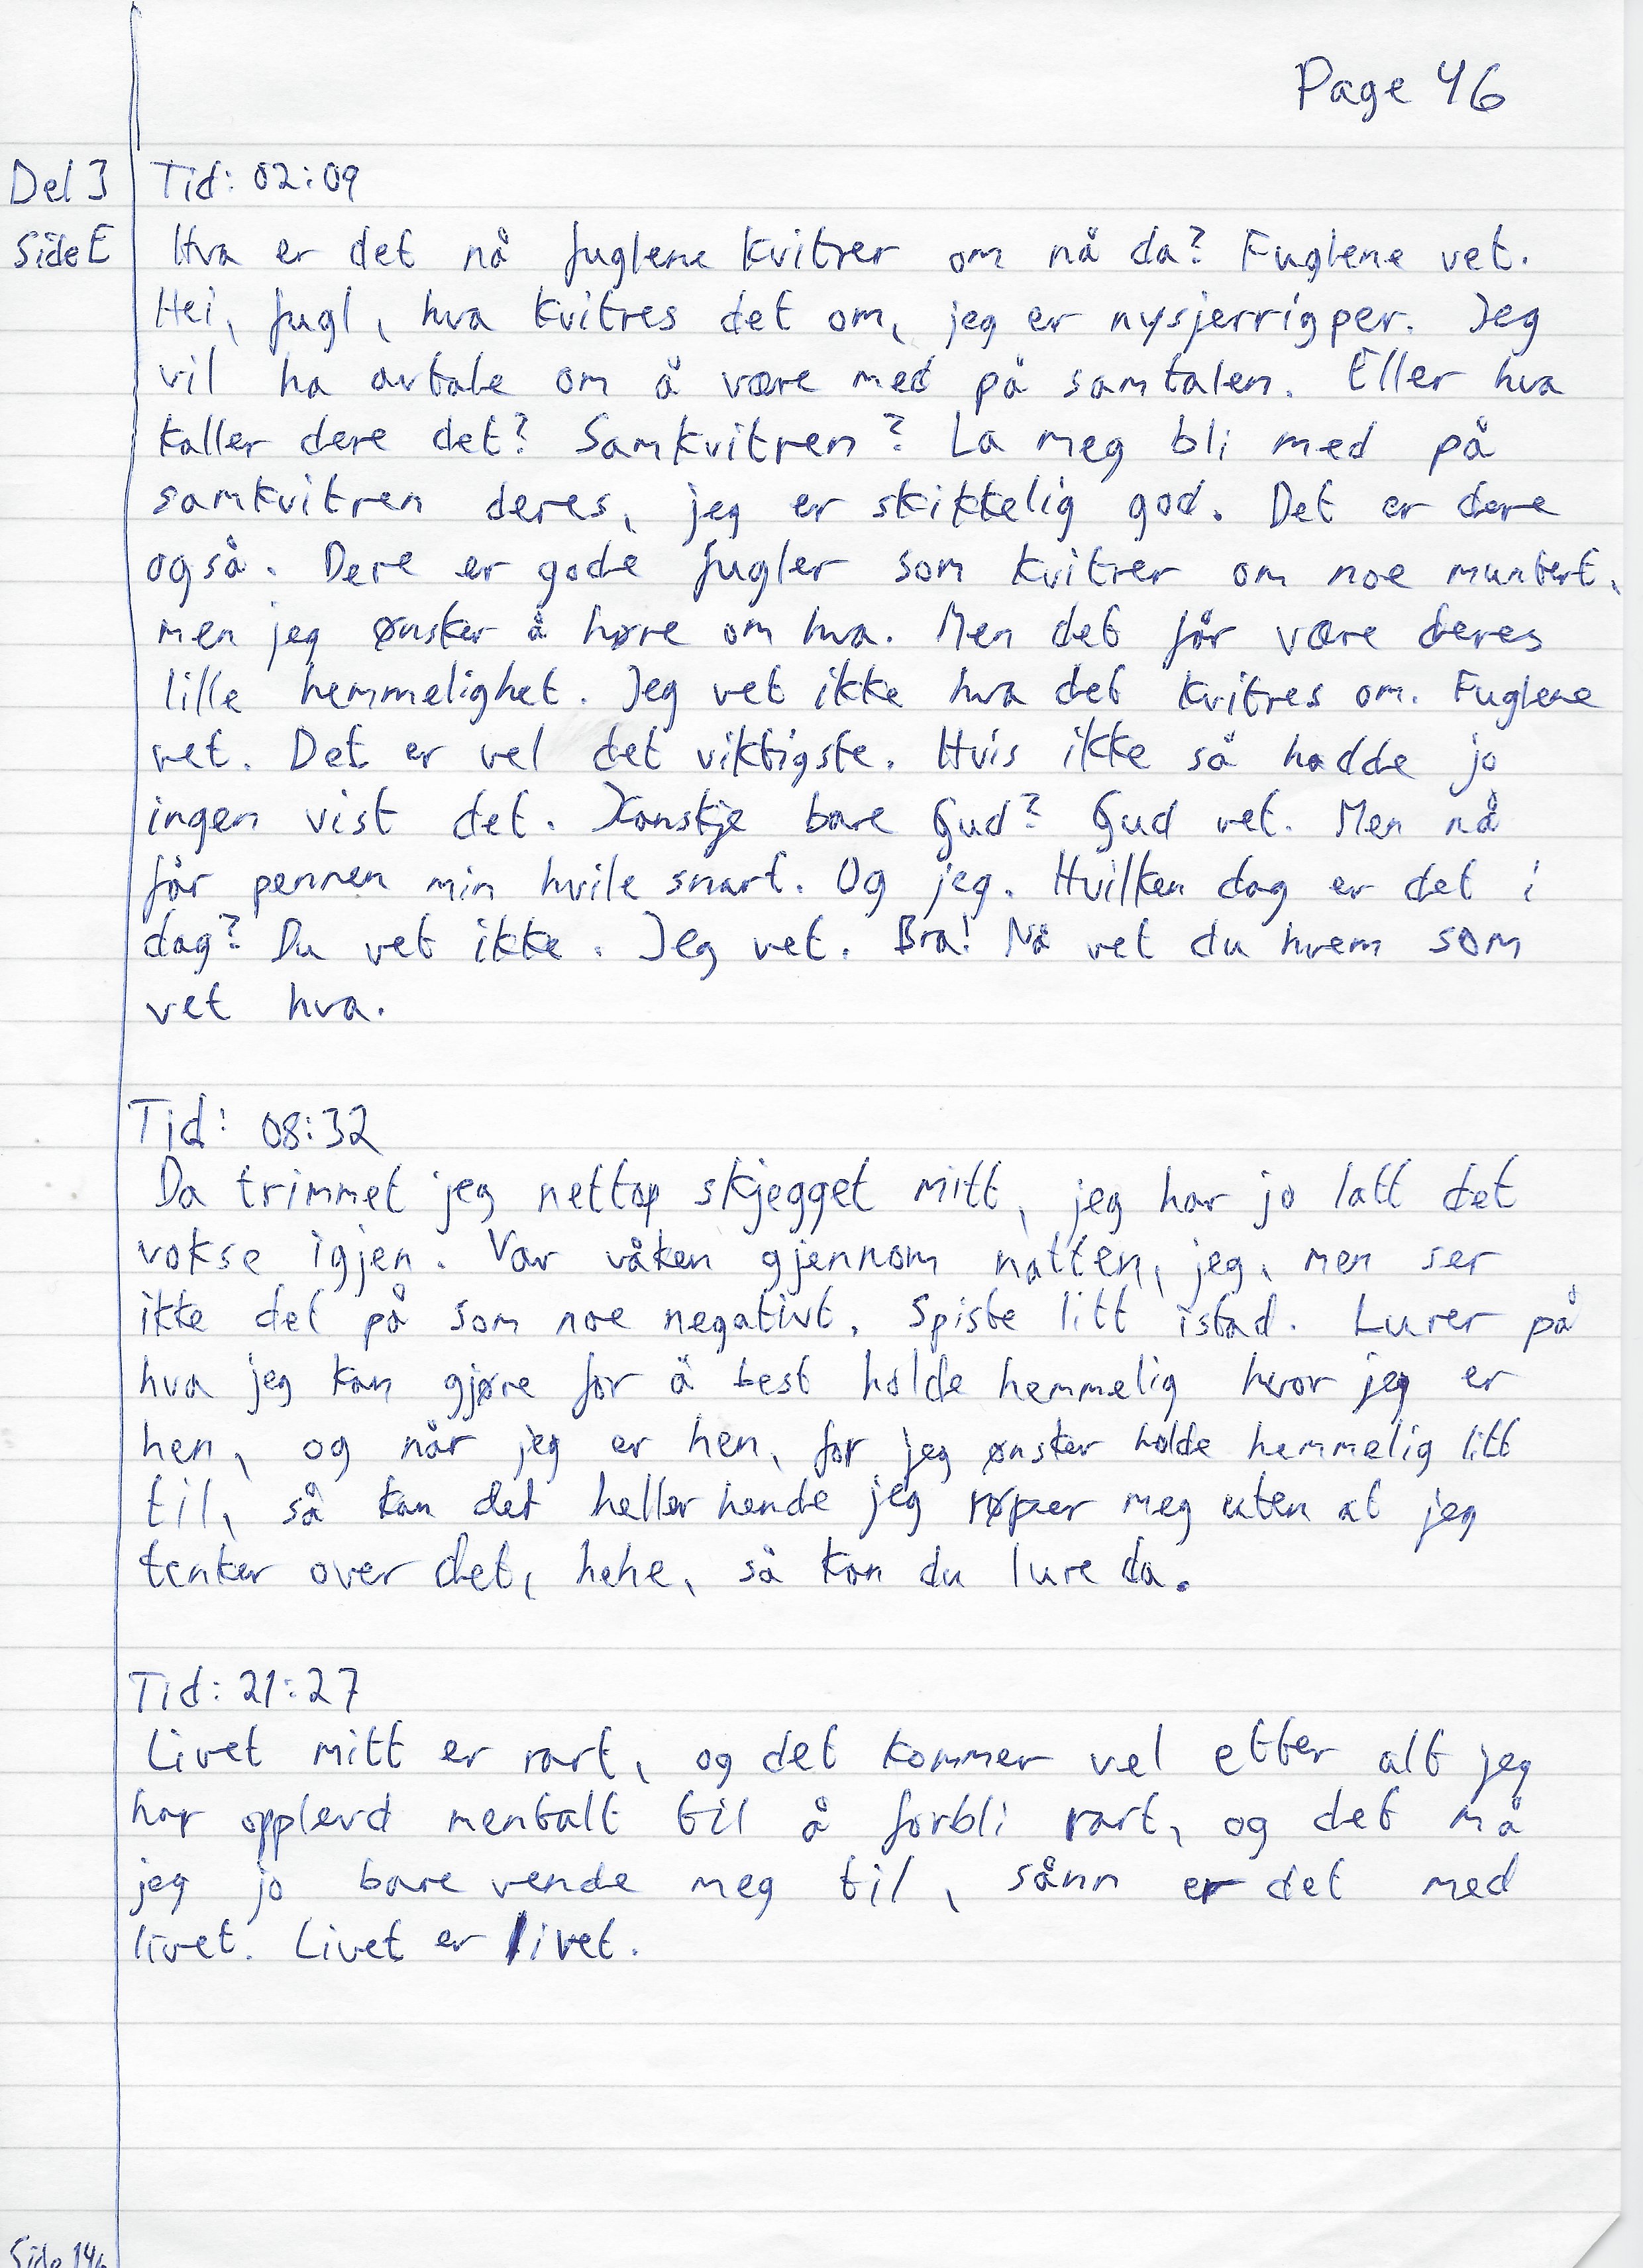 Page 46
Del 3 Tid: 02:09
Side E Hva er det nå fuglene kvitrer om nå da? Fuglene vet.
Hei, fugl, hva kvitres det om, jeg er nysjerrigper. Jeg
vil ha avtale om å være med på samtalen. Eller hva
kaller dere det? Samkvitren? La meg bli med på
samkvitren deres, jeg er skikkelig god. Det er dere
også. Dere er gode fugler som kvitrer om noe muntert,
men jeg ønsker å høre om hva. Men det får være deres
lille hemmelighet. Jeg vet ikke hva det kvitres om. Fuglene
vet. Det er vel det viktigste. Hvis ikke så hadde jo
ingen vist det. Kanskje bare Gud? Gud vet. Men nå
får pennen min hvile snart. Og jeg. Hvilken dag er det i
dag? Du vet ikke. Jeg vet. Bra! Nå vet du hvem som
vet hva.
Tid: 08:32
Da trimmet jeg nettop skjegget mitt, jeg har jo latt det
vokse igjen. Var våken gjennom natten, jeg, men ser
ikke det på som noe negativt. Spiste litt istad. Lurer på
hva jeg kan gjøre for å best holde hemmelig hvor jeg er
hen, og når jeg er hen, for jeg ønsker holde hemmelig litt
til, så kan det heller hende jeg røper meg uten at jeg
tenker over det, hehe, så kan du lure da.
Tid: 21:27
Livet mitt er rart, og det kommer vel etter alt jeg
har opplevd mentalt til å forbli rart, og det må
jeg jo bare vende meg til, sånn er det med
livet. Livet er livet.